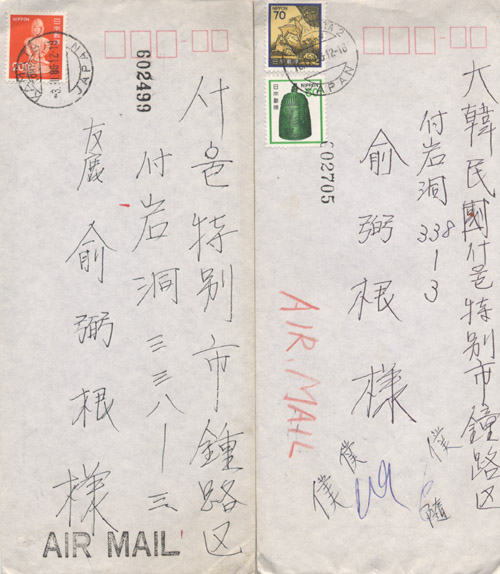 602499
서울特別市鍾路区
付岩洞三三八ー三
友鹿 兪弼根様
AIR MAIL
NIPPON
JAPAN
大韓民國서울特別市鐘路区
付岩洞 338ー3
兪弼根様
602705
AIR.MAIL
70
NIPPON
日本郵便
日本郵便
NIPPON
JAPAN
僕
僕
僕
隨